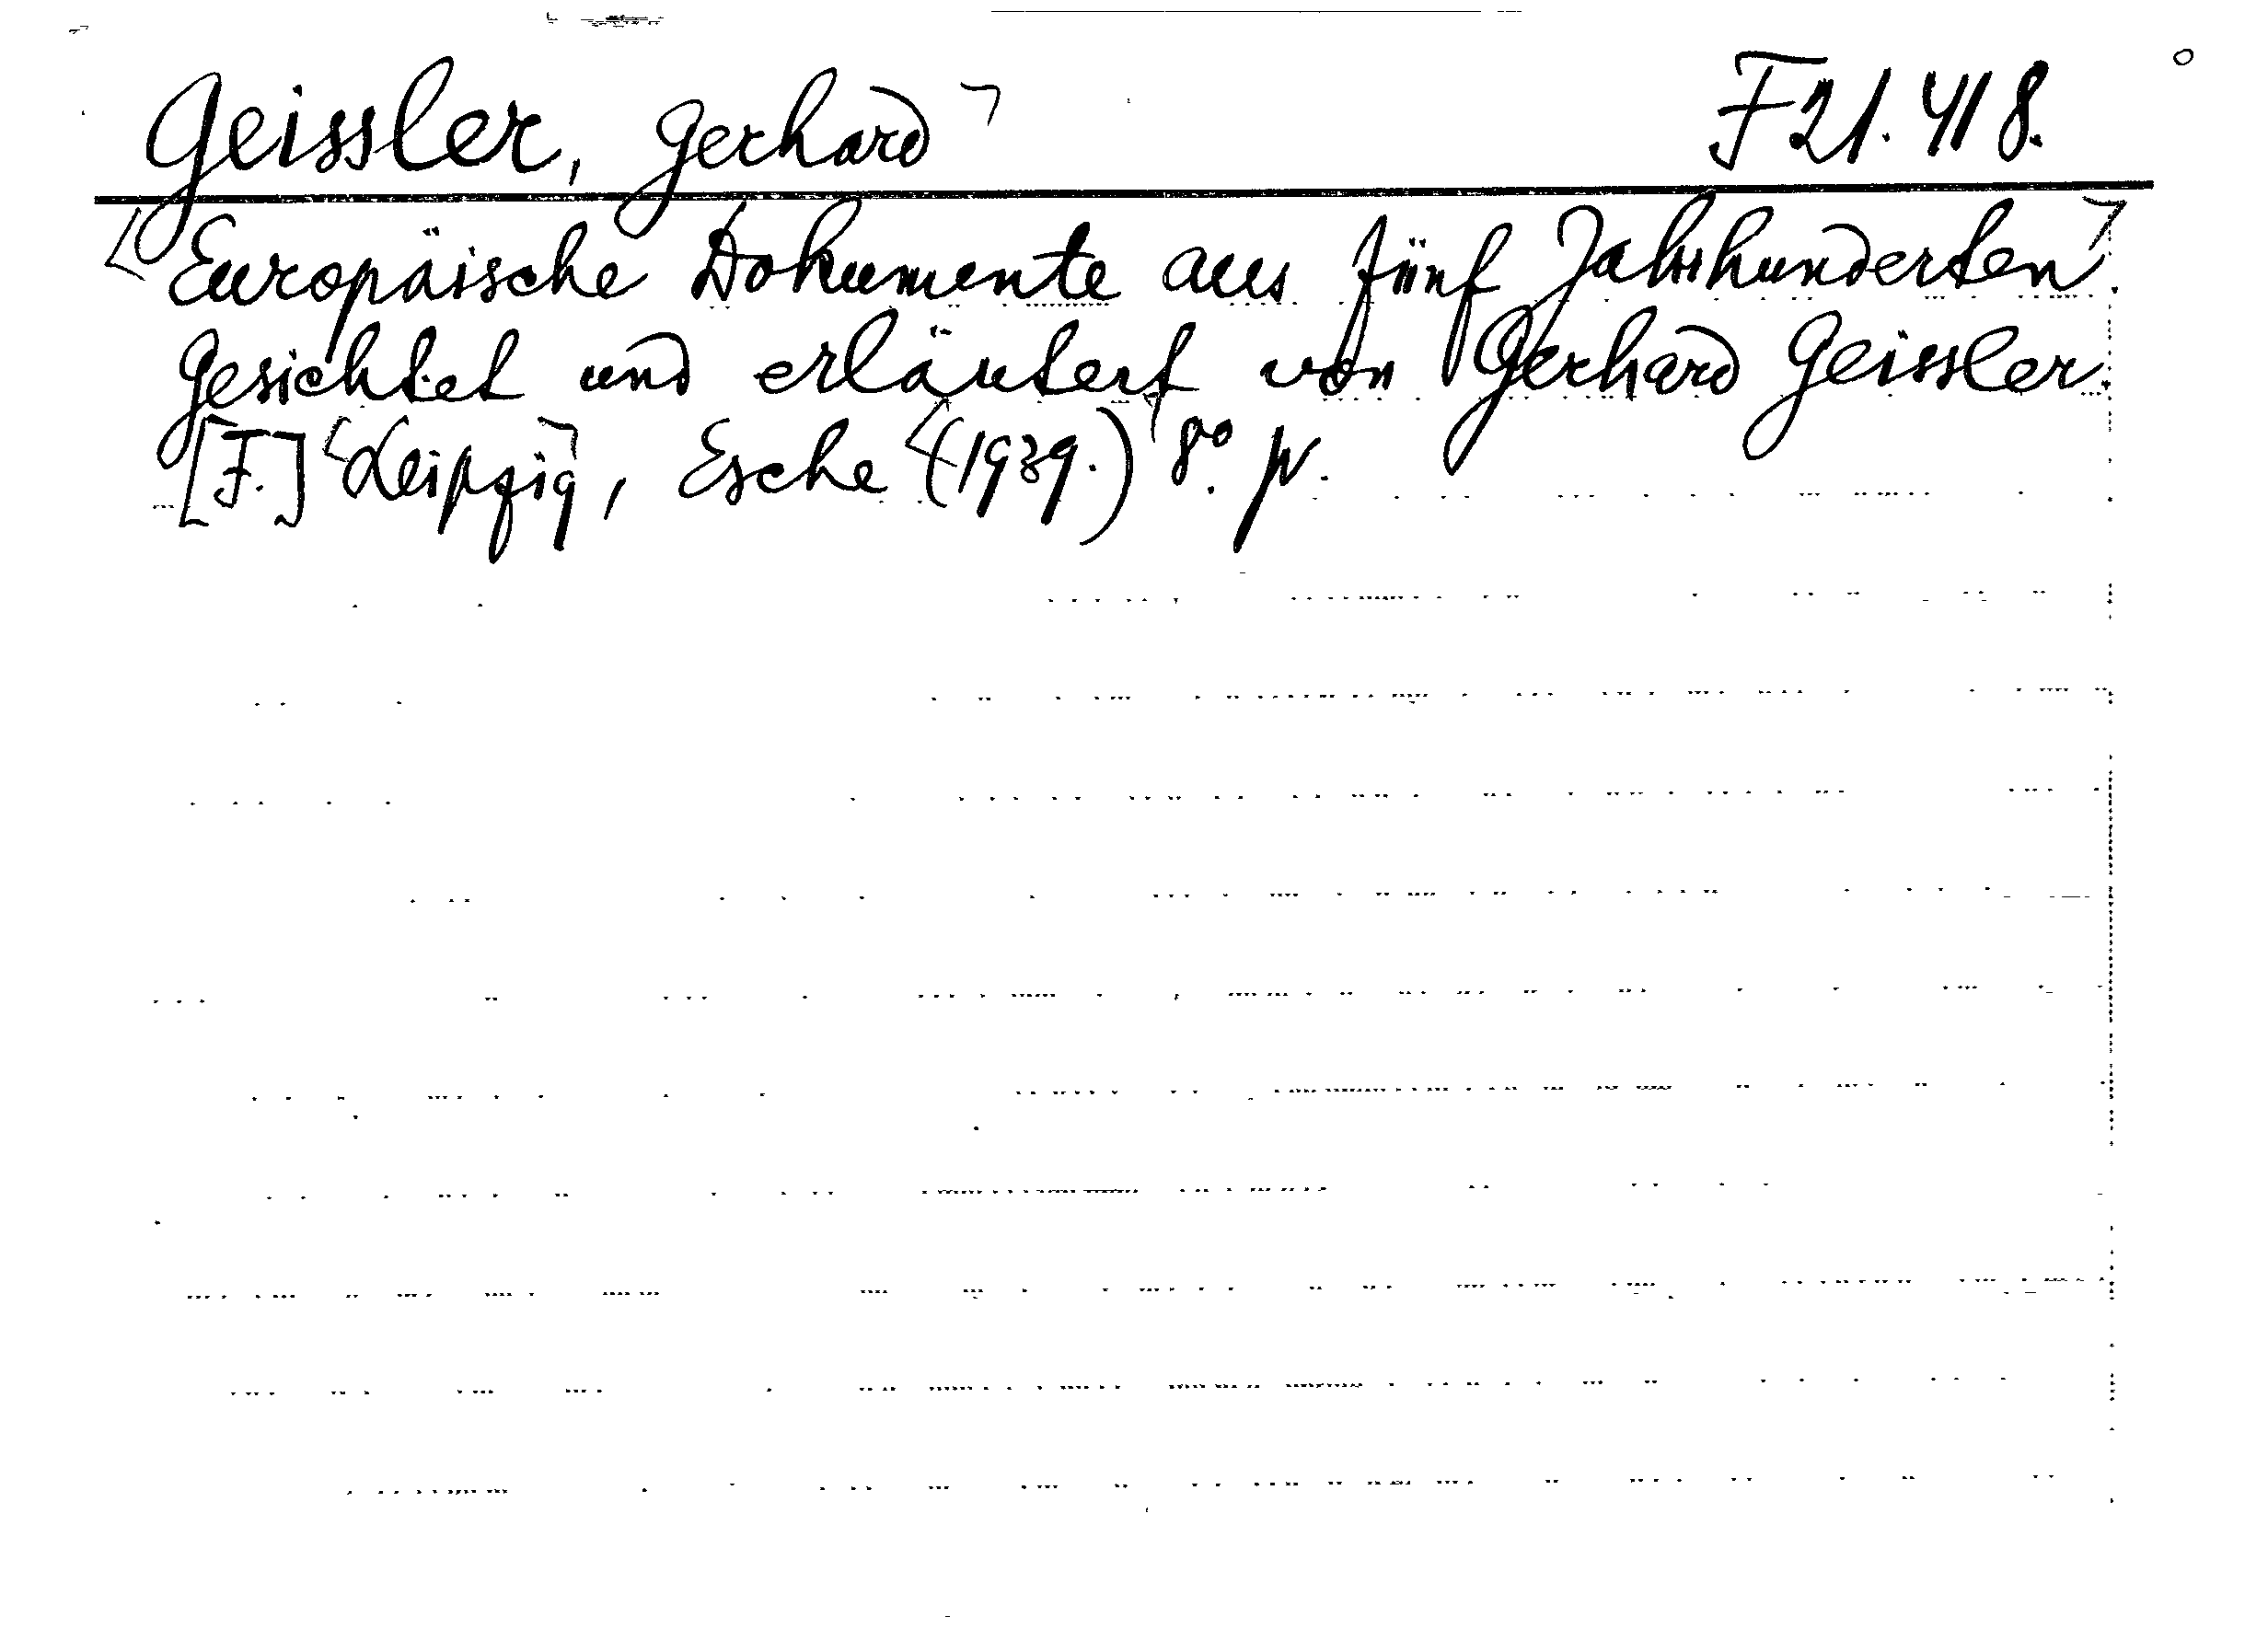 Geissler, Gerhard F 21.418.
Europäische Dokumente aus fünf Jahrhunderten.
Gesichtet und erläutert von Gerhard Geissler.
[F.] Leipzig, Esche (1939.) 8°.